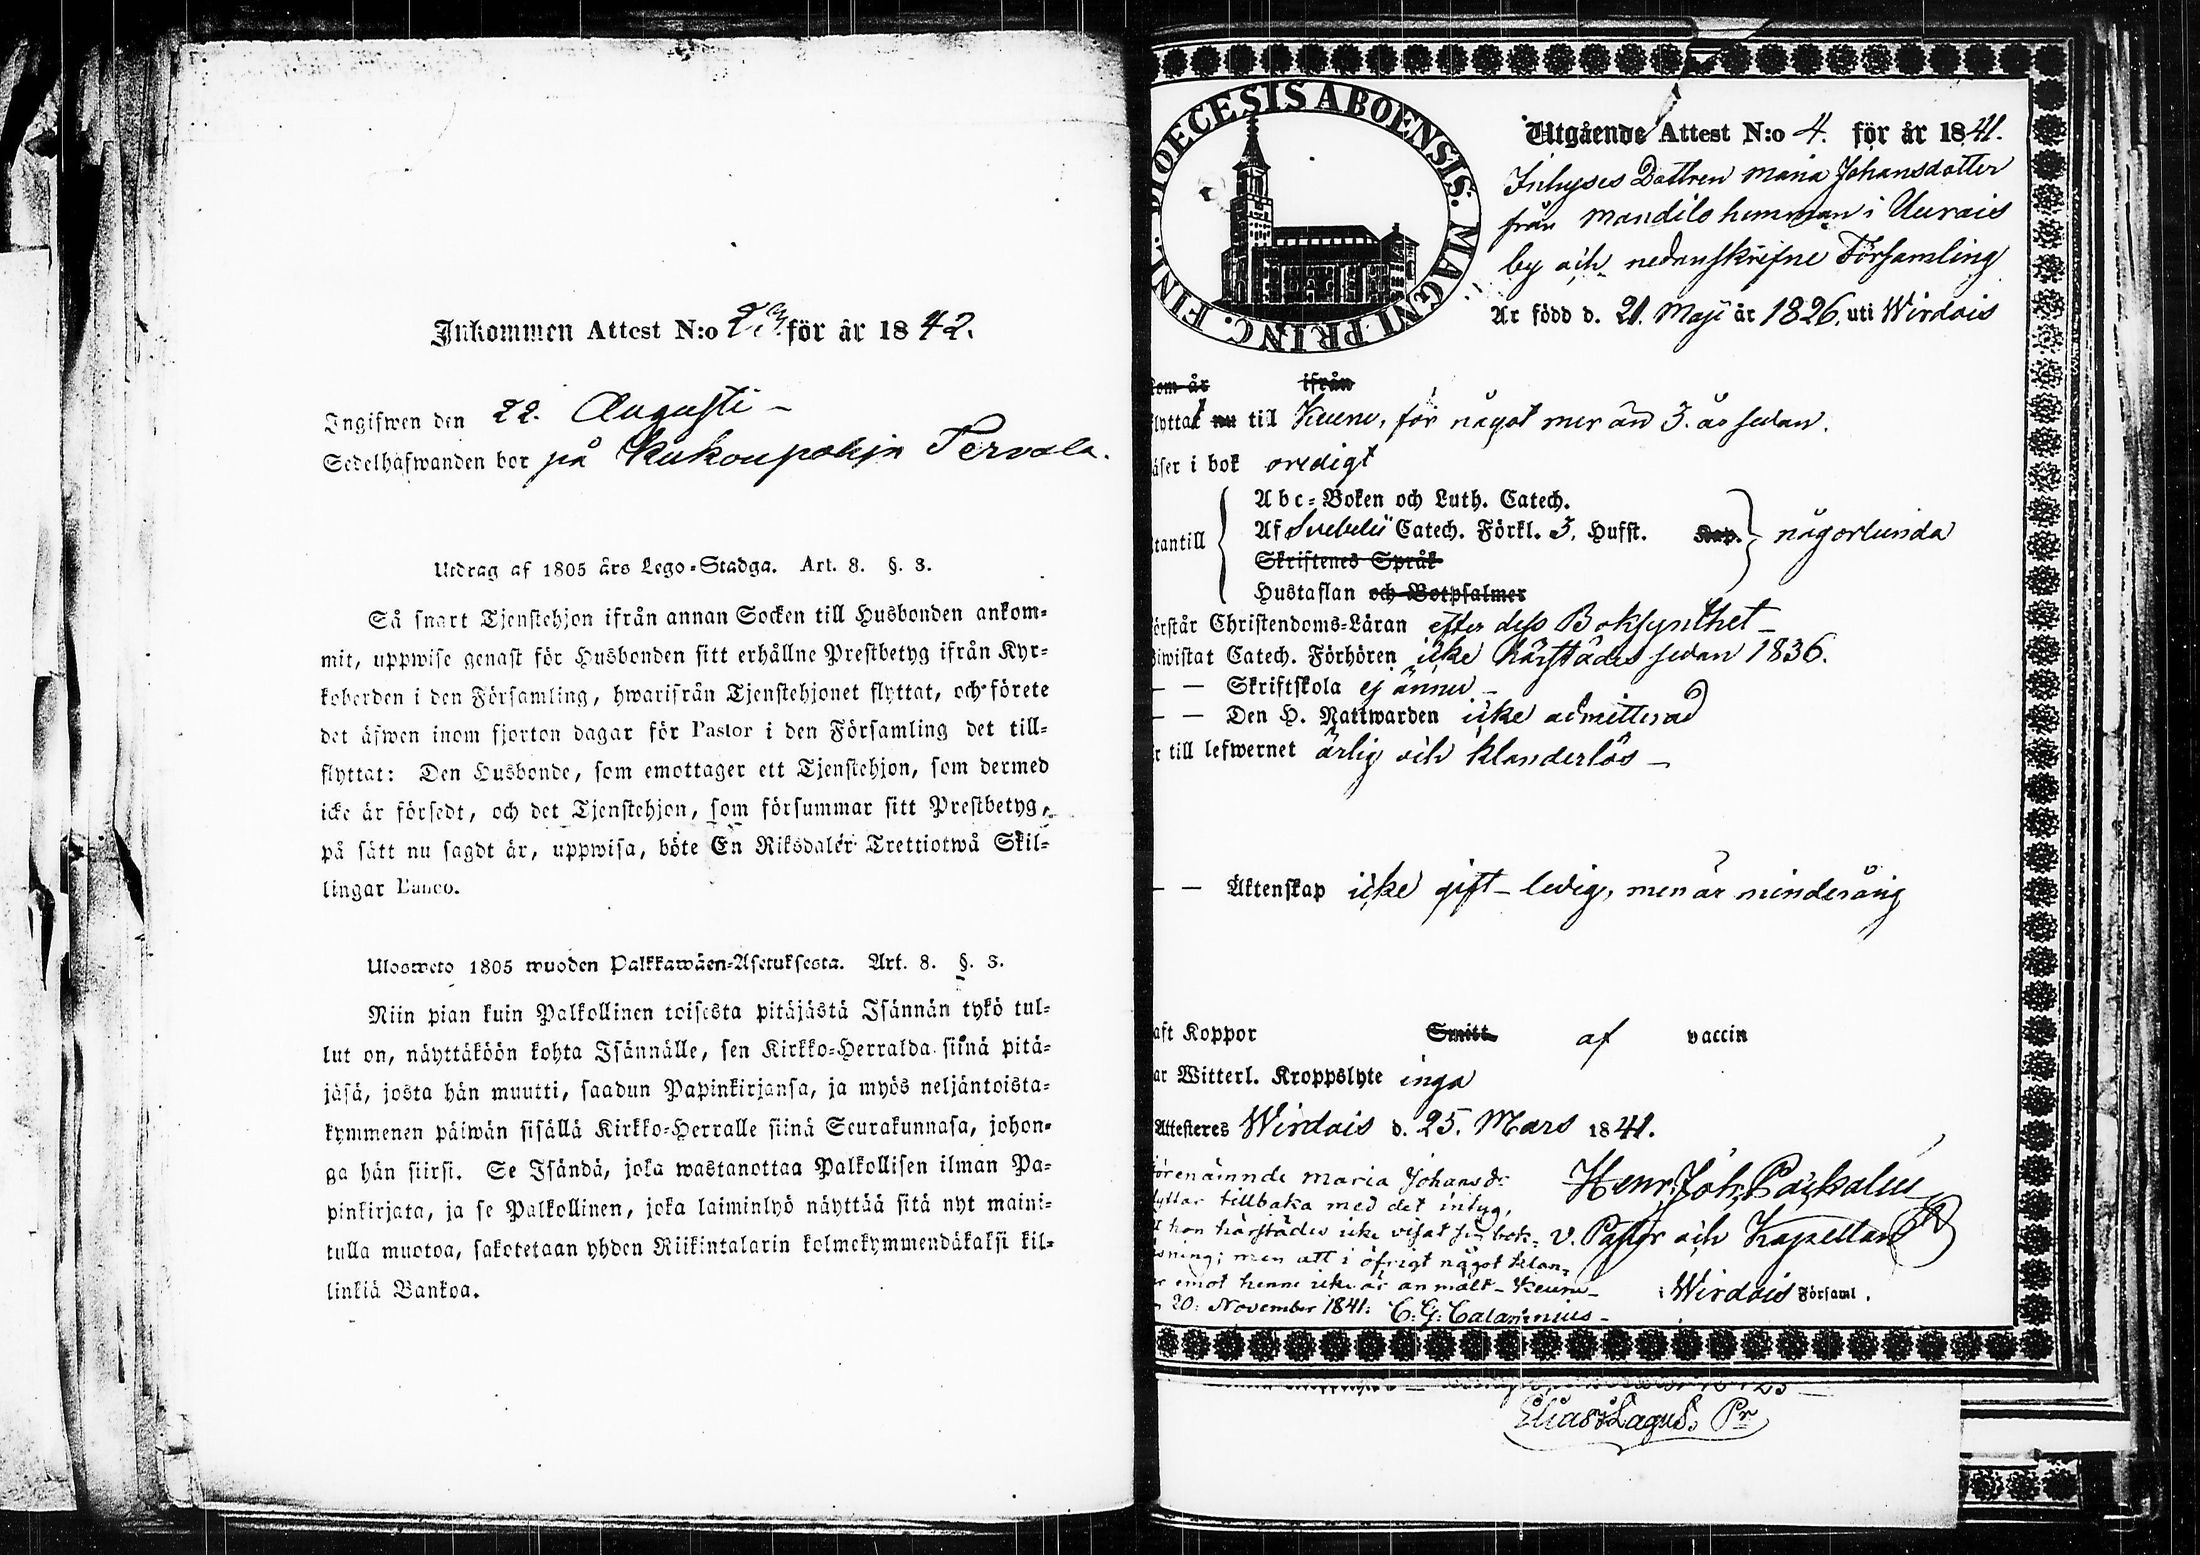 Inkommen Attest N:o 23. för år 1842.
Ingifwen den 22. Augusti –
Sedelhafwanden bor på Kukoupohja Tervala.
Utdrag af 1805 års Lego-Stadga. Art. 8. §. 3.
Så snart Tjenstehjon ifrån annan Socken till Husbonden ankom-
mit, uppwise genast för Husbonden sitt erhållne Prestbetyg ifrån Kyr-
koherden i den Församling, hwarifrån Tjenstehjonet flyttat, och förete
det äfwen inom fjorton dagar för Pastor i den Församling det till-
flyttat: Den Husbonde, som emottager ett Tjenstehjon, som dermed
icke är försedt, och det Tjenstehjon, som försummar sitt Prestbetyg,
på sätt nu sagdt är, uppwisa, böte En Riksdaler Trettiotwå Skil-
lingar Banco.
Ulosweto 1805 wuoden Palkkawäen-Asetuksesta. Art. 8. §. 3.
Niin pian kuin Palkollinen toisesta pitäjästä Isännän tykö tul-
lut on, näyttäköön kohta Isännälle, sen Kirkko-Herralda siinä pitä-
jäsä, josta hän muutti, saadun Papinkirjansa, ja myös neljäntoista-
kymmenen päiwän sisällä Kirkko-Herralle siinä Seurakunnasa, johon-
ga hän siirsi. Se Isändä, joka wastanottaa Palkollisen ilman Pa-
pinkirjata, ja se Palkollinen, joka laiminlyö näyttää sitä nyt maini-
tulla muotoa, sakotetaan yhden Riikintalarin kolmekymmendäkaksi kil-
linkiä Bankoa.
DIOECESIS ABOENSIS. MAGNI PRINC. FINL.
Utgående Attest N:o 4. för år 1841.
Inhyses Dottren Maria Johansdotter
från Mandilo hemman i Uurais
by och nedanskrifne Församling
Är född d. 21. Maji år 1826. uti Wirdois
kom år ifrån
flyttat nu till Keuru, för något mer än 3. år sedan.
Läser i bok oredigt
Abc-Boken och Luth. Catech.
utantill Af Svebelii Catech. Förkl. 3. Hufst. Kap. någorlunda
Skriftenes Språk
Hustaflan och Botpsalmer
Förstår Christendoms-Läran efter dess Boksynthet –
Biwistat Catech. Förhören icke härstädes sedan 1836.
– – Skriftskola ej ännu –
– – Den H. Nattwarden icke admitterad
Är till lefwernet ärlig och klanderlös –
– – Äktenskap icke gift – ledig, men är minderårig
haft Koppor Smitt. af vaccin
har Witterl. Kroppslyte inga
Attesteres Wirdois d. 25. Mars 1841.
Henr. Joh.
v. Pastor och Kapellan
i Wirdois Församl.
Förenämnde Maria Johansdr
flyttar tillbaka med det intyg,
att hon härstädes icke visat sin bok-
läsning; men att i öfrigt något klan-
der emot henne icke är anmält – Keuru –
20: November 1841: C: G: Calamnius –
Elias Lagus, Pr